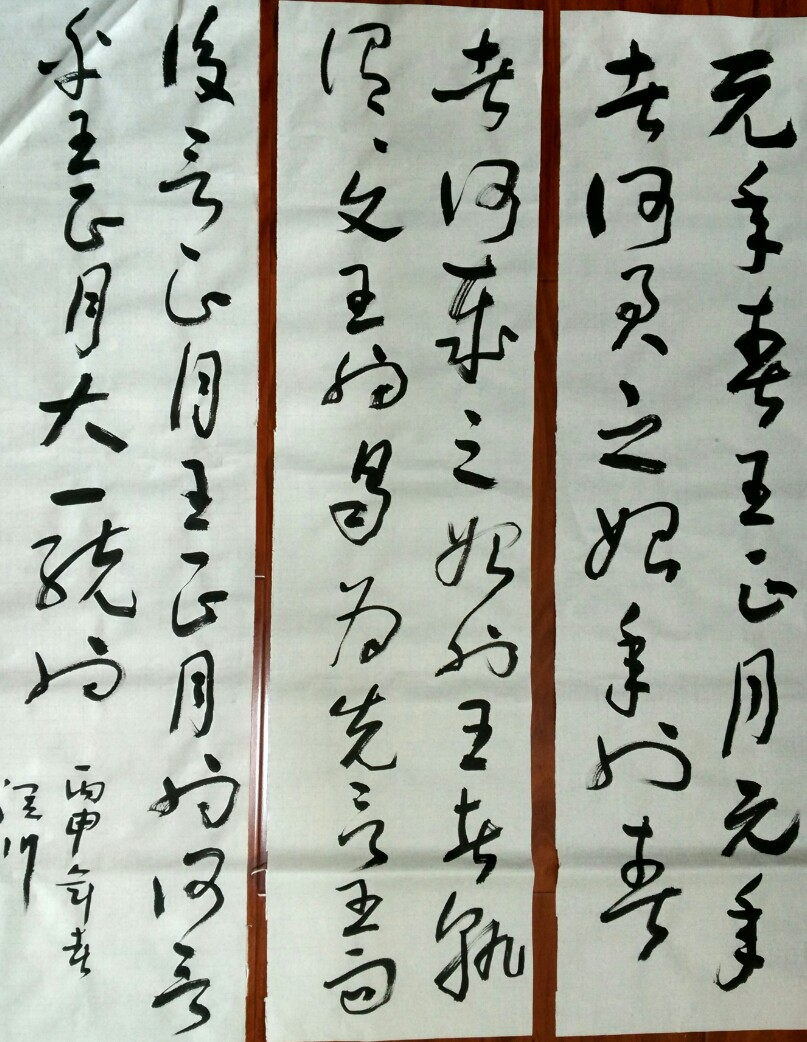 元年春王正月元年
者何君之始年也春
者何歲之始也王者孰
謂〻文王也曷为先言王而
後言正月王正月也何言
乎王正月大一統也
丙申年春
川